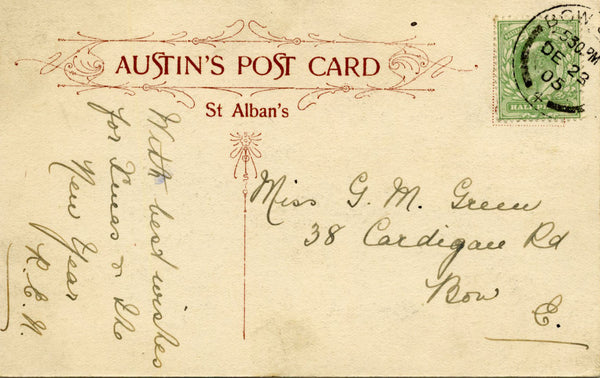 AUSTIN'S POST CARD
St Alban's
BOW
5.30 PM
DE 23
05
HALF PENNY
With best wishes
for Xmas & the
New Year
R. E. N.
Miss G. M. Green
38 Cardigan Rd
Bow
E.